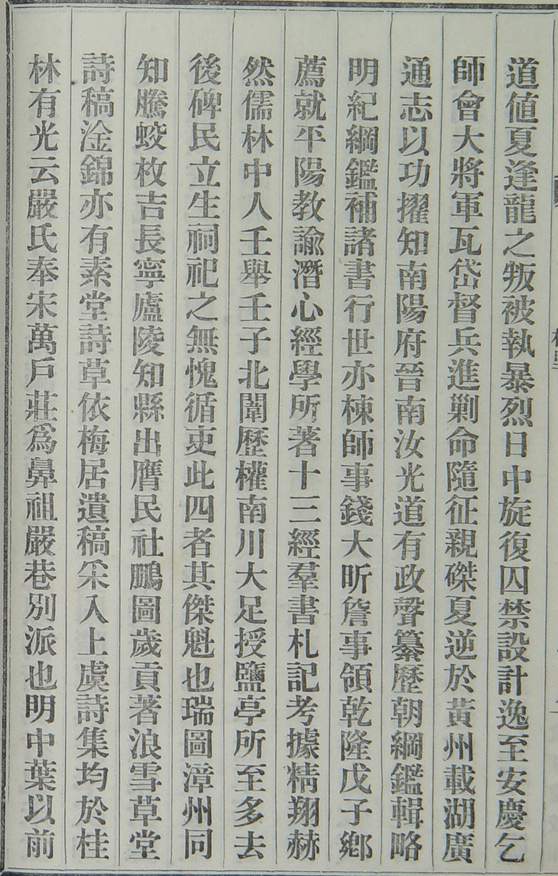 道値夏逢龍之叛被執暴烈日中旋復囚禁設計逸至安慶乞
師會大將軍瓦岱督兵進剿命隨征親磔夏逆於黃州載湖廣
通志以功擢知南陽府晉南汝光道有政聲纂歷朝綱鑑輯略
明紀綱鑑補諸書行世亦棟師事錢大昕詹事領乾隆戊子鄉
薦就平陽教諭潛心經學所著十三經羣書札記考據精翔赫
然儒林中人壬舉壬子北闈歷權南川大足授鹽亭所至多去
後碑民立生祠祀之無愧循吏此四者其傑魁也瑞圖漳州同
知騰蛟枚吉長寧廬陵知縣出膺民社鵬圖歲貢著浪雪草堂
詩稿淦錦亦有素堂詩草依梅居遺稿采入上虞詩集均於桂
林有光云嚴氏奉宋萬戶莊爲鼻祖嚴巷別派也明中葉以前